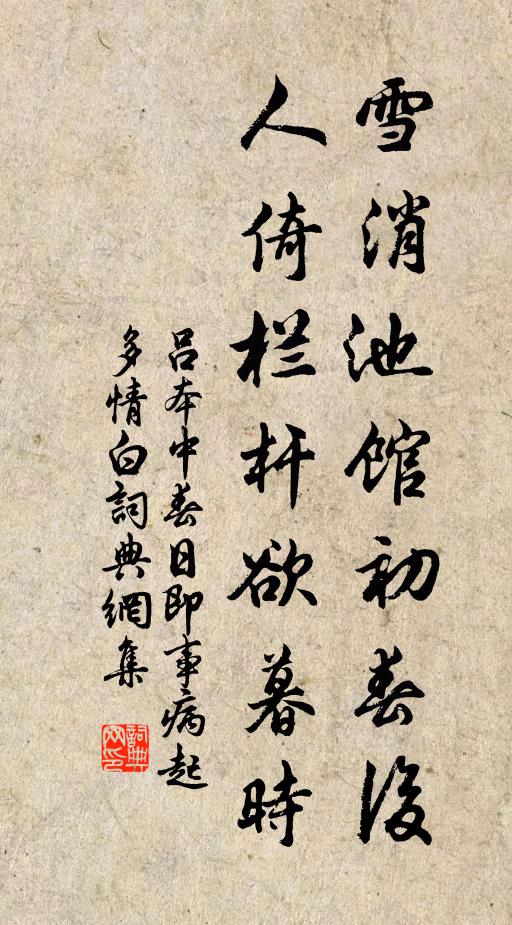 雪消池馆初春后
人倚栏杆欲暮时
吕本中春日即事病起
多情白詞典網集
詞典網印